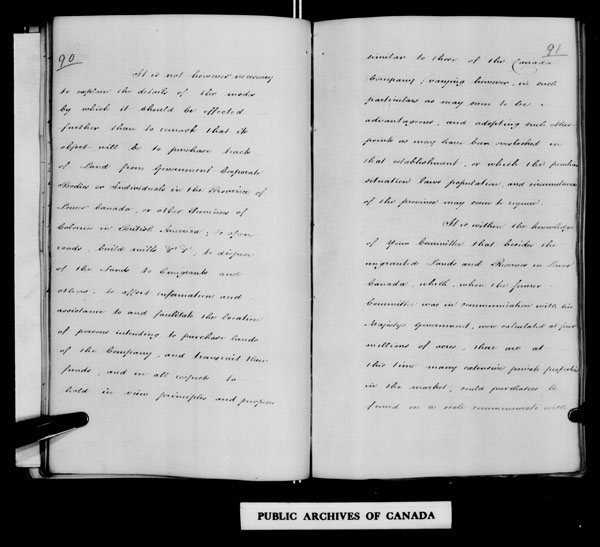 90
It is not however necessary
to explain the details of the mode
by which it should be effected
further than to remark that its
object will be to purchase tracts
of Land from Government Corporate
Bodies or Individuals in the Province of
Lower Canada, or other Provinces or
Colonies in British America; to open
roads, build mills &c &c, to dispose
of the Lands to Emigrants and
others, to afford information and
assistance to and facilitate the location
of persons intending to purchase lands
of the Company, and transmit their
funds, and in all respects to
hold in view principles and purposes
91
similar to those of the Canada
Company; varying however, in such
particulars as may seem to be
advantageous, and adopting such other
points as may have been overlooked in
that establishment, or which the peculiar
situation laws population, and circumstances
of the province may seem to require.
It is within the knowledge
of Your Committee that besides the
ungranted Lands and Reserves in Lower
Canada, which, when the former
Committee was in communication with his
Majestys Government, were calculated at four
millions of acres, there are at
this time many extensive private properties
in the market, could purchasers be
found on a scale commensurate with
PUBLIC ARCHIVES OF CANADA